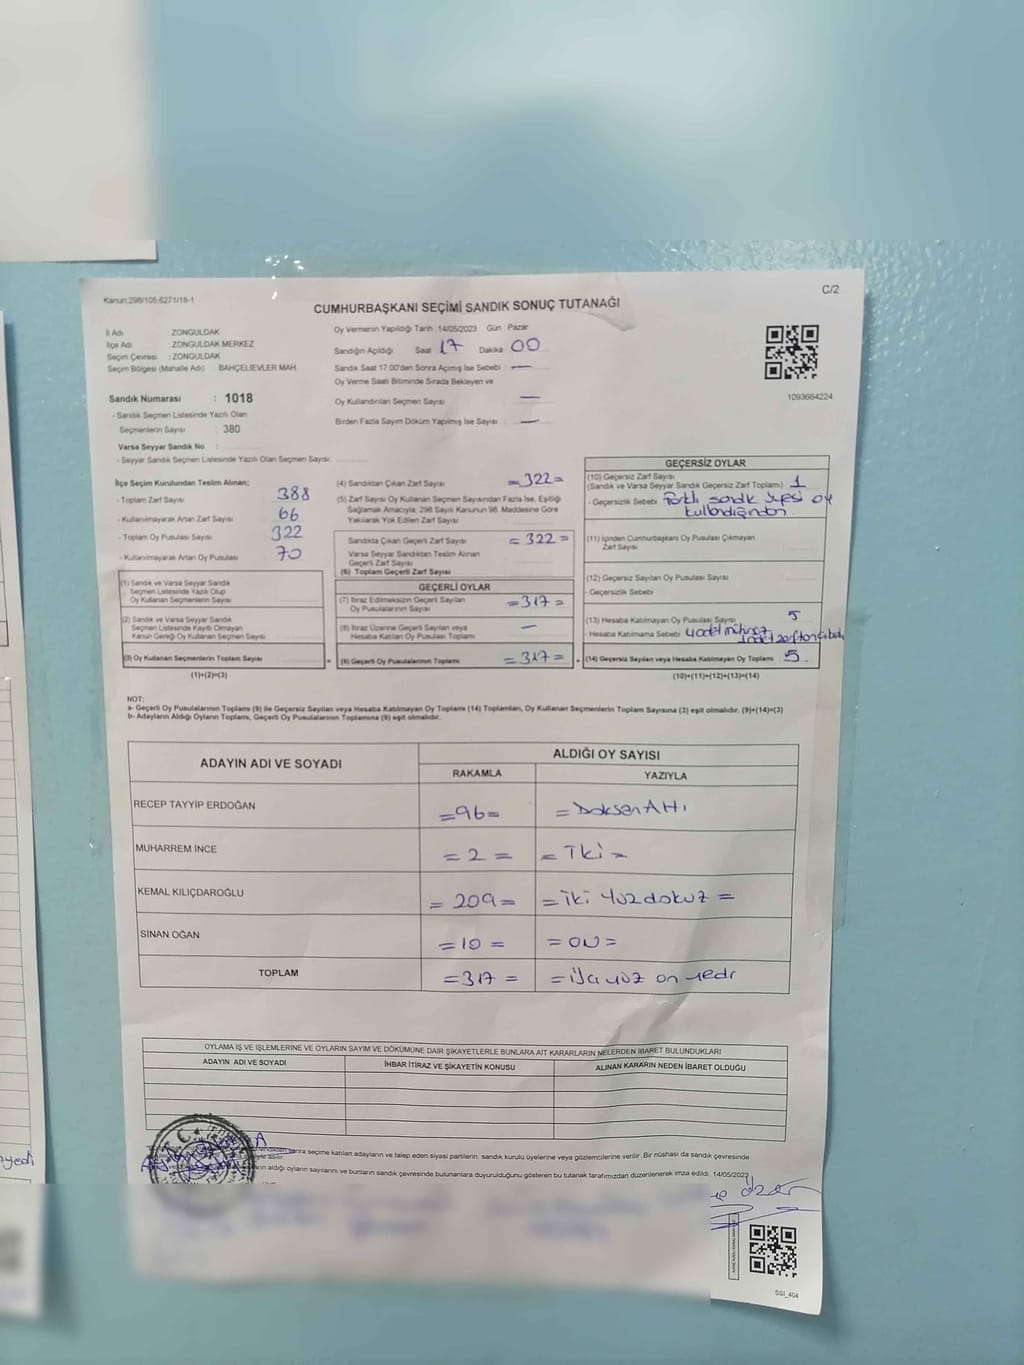 Kanun:298/105;6271/18-1
C/2
CUMHURBAŞKANI SEÇİMİ SANDIK SONUÇ TUTANAĞI
İl Adı : ZONGULDAK
İlçe Adı : ZONGULDAK MERKEZ
Seçim Çevresi : ZONGULDAK
Seçim Bölgesi (Mahalle Adı) BAHÇELİEVLER MAH.
Sandık Numarası : 1018
- Sandık Seçmen Listesinde Yazılı Olan
Seçmenlerin Sayısı : 380
Varsa Seyyar Sandık No :
- Seyyar Sandık Seçmen Listesinde Yazılı Olan Seçmen Sayısı:
Oy Vermenin Yapıldığı Tarih 14/05/2023 Gün Pazar
Sandığın Açıldığı Saat 17 Dakika 00
Sandık Saat 17:00'den Sonra Açmış İse Sebebi —
Oy Verme Saati Bitiminde Sırada Bekleyen ve
Oy Kullandırılan Seçmen Sayısı —
Birden Fazla Sayım Döküm Yapılmış İse Sayısı —
1093664224
İlçe Seçim Kurulundan Teslim Alınan;
- Toplam Zarf Sayısı 388
- Kullanılmayarak Artan Zarf Sayısı 66
- Toplam Oy Pusulası Sayısı 322
- Kullanılmayarak Artan Oy Pusulası 70
(1) Sandık ve Varsa Seyyar Sandık
Seçmen Listesinde Yazılı Olup
Oy Kullanan Seçmenlerin Sayısı
(2) Sandık ve Varsa Seyyar Sandık
Seçmen Listesinde Kayıtlı Olmayan
Kanun Gereği Oy Kullanan Seçmen Sayısı
(3) Oy Kullanan Seçmenlerin Toplam Sayısı
(1)+(2)=(3)
(4) Sandıktan Çıkan Zarf Sayısı =322=
(5) Zarf Sayısı Oy Kullanan Seçmen Sayısından Fazla İse, Eşitliği
Sağlamak Amacıyla; 298 Sayılı Kanunun 98. Maddesine Göre
Yakılarak Yok Edilen Zarf Sayısı
Sandıkta Çıkan Geçerli Zarf Sayısı =322=
Varsa Seyyar Sandıktan Teslim Alınan
Geçerli Zarf Sayısı
(6) Toplam Geçerli Zarf Sayısı
GEÇERLİ OYLAR
(7) İtiraz Edilmeksizin Geçerli Sayılan
Oy Pusulalarının Sayısı =317=
(8) İtiraz Üzerine Geçerli Sayılan veya
Hesaba Katılan Oy Pusulası Toplamı —
(9) Geçerli Oy Pusulalarının Toplamı =317=
GEÇERSİZ OYLAR
(10) Geçersiz Zarf Sayısı
(Sandık ve Varsa Seyyar Sandık Geçersiz Zarf Toplamı) 1
- Geçersizlik Sebebi Farklı sandık üyesi oy
kullandığından
(11) İçinden Cumhurbaşkanı Oy Pusulası Çıkmayan
Zarf Sayısı
(12) Geçersiz Sayılan Oy Pusulası Sayısı
- Geçersizlik Sebebi
(13) Hesaba Katılmayan Oy Pusulası Sayısı 5
- Hesaba Katılmama Sebebi 4 adet mühürsüz
(14) Geçersiz Sayılan veya Hesaba Katılmayan Oy Toplamı 5
(10)+(11)+(12)+(13)=(14)
NOT:
a- Geçerli Oy Pusulasının Toplamı (9) ile Geçersiz Sayılan veya Hesaba Katılmayan Oy Toplamı (14) Toplamları, Oy Kullanan Seçmenlerin Toplam Sayısına (3) eşit olmalıdır. (9)+(14)=(3)
b- Adayların Aldığı Oyların Toplamı, Geçerli Oy Pusulalarının Toplamına (9) eşit olmalıdır.
ADAYIN ADI VE SOYADI ALDIĞI OY SAYISI
RAKAMLA YAZIYLA
RECEP TAYYİP ERDOĞAN =96= =DoksanAltı
MUHARREM İNCE =2= =İki=
KEMAL KILIÇDAROĞLU =209= =iki Yüzdokuz=
SİNAN OĞAN =10= =ON=
TOPLAM =317= =üçyüz on yedi
OYLAMA İŞ VE İŞLEMLERİNE VE OYLARIN SAYIM VE DÖKÜMÜNE DAİR ŞİKAYETLERLE BUNLARA AİT KARARLARIN NELERDEN İBARET BULUNDUKLARI
ADAYIN ADI VE SOYADI İHBAR İTİRAZ VE ŞİKAYETİN KONUSU ALINAN KARARIN NEDEN İBARET OLDUĞU
sonra seçime katılan adayların ve talep eden siyasi partilerin sandık kurulu üyelerine veya gözlemcilerine verilir. Bir nüshası da sandık çevresinde
aldığı oyların sayılarını ve bunların sandık çevresinde bulunanlara duyurulduğunu gösteren bu tutanak tarafımızdan düzenlenerek imza edildi. 14/05/2023
SSI_404